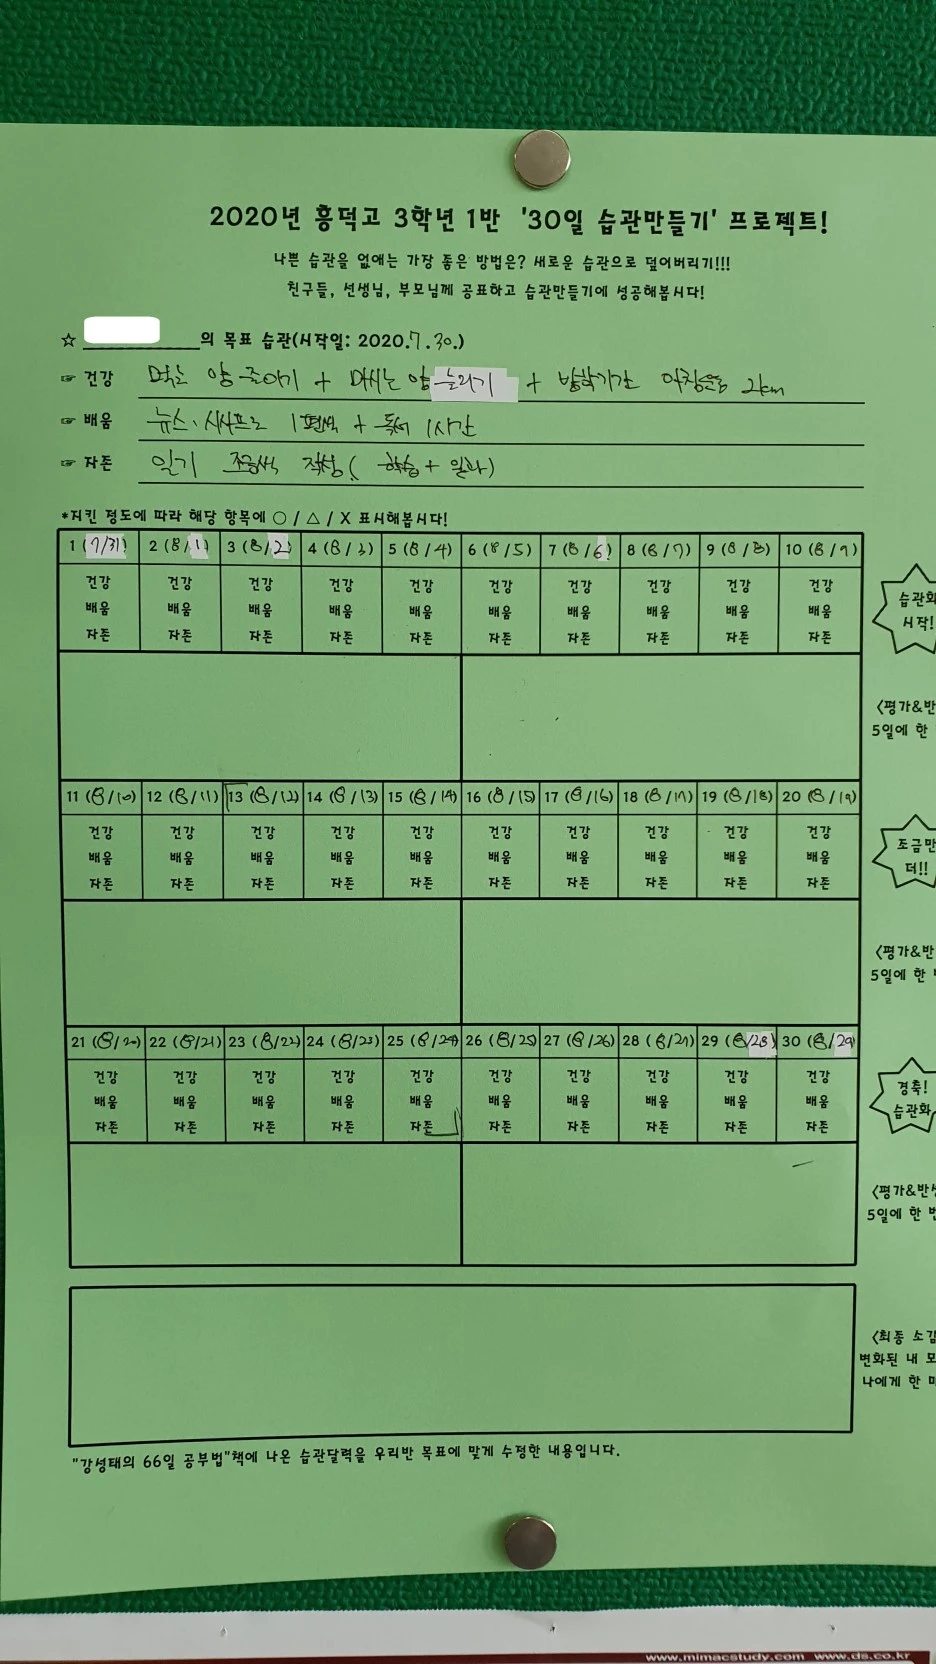 2020년 흥덕고 3학년 1반 '30일 습관만들기' 프로젝트!
나쁜 습관을 없애는 가장 좋은 방법은? 새로운 습관으로 덮어버리기!!!
친구들, 선생님, 부모님께 공표하고 습관만들기에 성공해봅시다!
☆ 의 목표 습관(시작일: 2020.7.30.)
☞ 건강 먹는 양 줄이기 + 마시는 양 늘리기 + 방학기간 아침운동
☞ 배움 뉴스·시사프로 1편씩 + 독서 1시간
☞ 자존 일기 조금씩 작성( 학습 + 일과)
*지킨 정도에 따라 해당 항목에 ○ / △ / X 표시해봅시다!
1 (7/31) 2 (8/1) 3 (8/2) 4 (8/3) 5 (8/4) 6 (8/5) 7 (8/6) 8 (8/7) 9 (8/8) 10 (8/9)
건강 건강 건강 건강 건강 건강 건강 건강 건강 건강
배움 배움 배움 배움 배움 배움 배움 배움 배움 배움
자존 자존 자존 자존 자존 자존 자존 자존 자존 자존
습관화
시작!
<평가&반
5일에 한
11 (8/10) 12 (8/11) 13 (8/12) 14 (8/13) 15 (8/14) 16 (8/15) 17 (8/16) 18 (8/17) 19 (8/18) 20 (8/19)
건강 건강 건강 건강 건강 건강 건강 건강 건강 건강
배움 배움 배움 배움 배움 배움 배움 배움 배움 배움
자존 자존 자존 자존 자존 자존 자존 자존 자존 자존
조금만
더!!
<평가&반
5일에 한
21 (8/20) 22 (8/21) 23 (8/22) 24 (8/23) 25 (8/24) 26 (8/25) 27 (8/26) 28 (8/27) 29 (8/28) 30 (8/29)
건강 건강 건강 건강 건강 건강 건강 건강 건강 건강
배움 배움 배움 배움 배움 배움 배움 배움 배움 배움
자존 자존 자존 자존 자존 자존 자존 자존 자존 자존
경축!
습관화
<평가&반성
5일에 한 번
<최종 소감
변화된 내 모
나에게 한 마
"강성태의 66일 공부법"책에 나온 습관달력을 우리반 목표에 맞게 수정한 내용입니다.
www.mimacstudy.com www.ds.co.kr